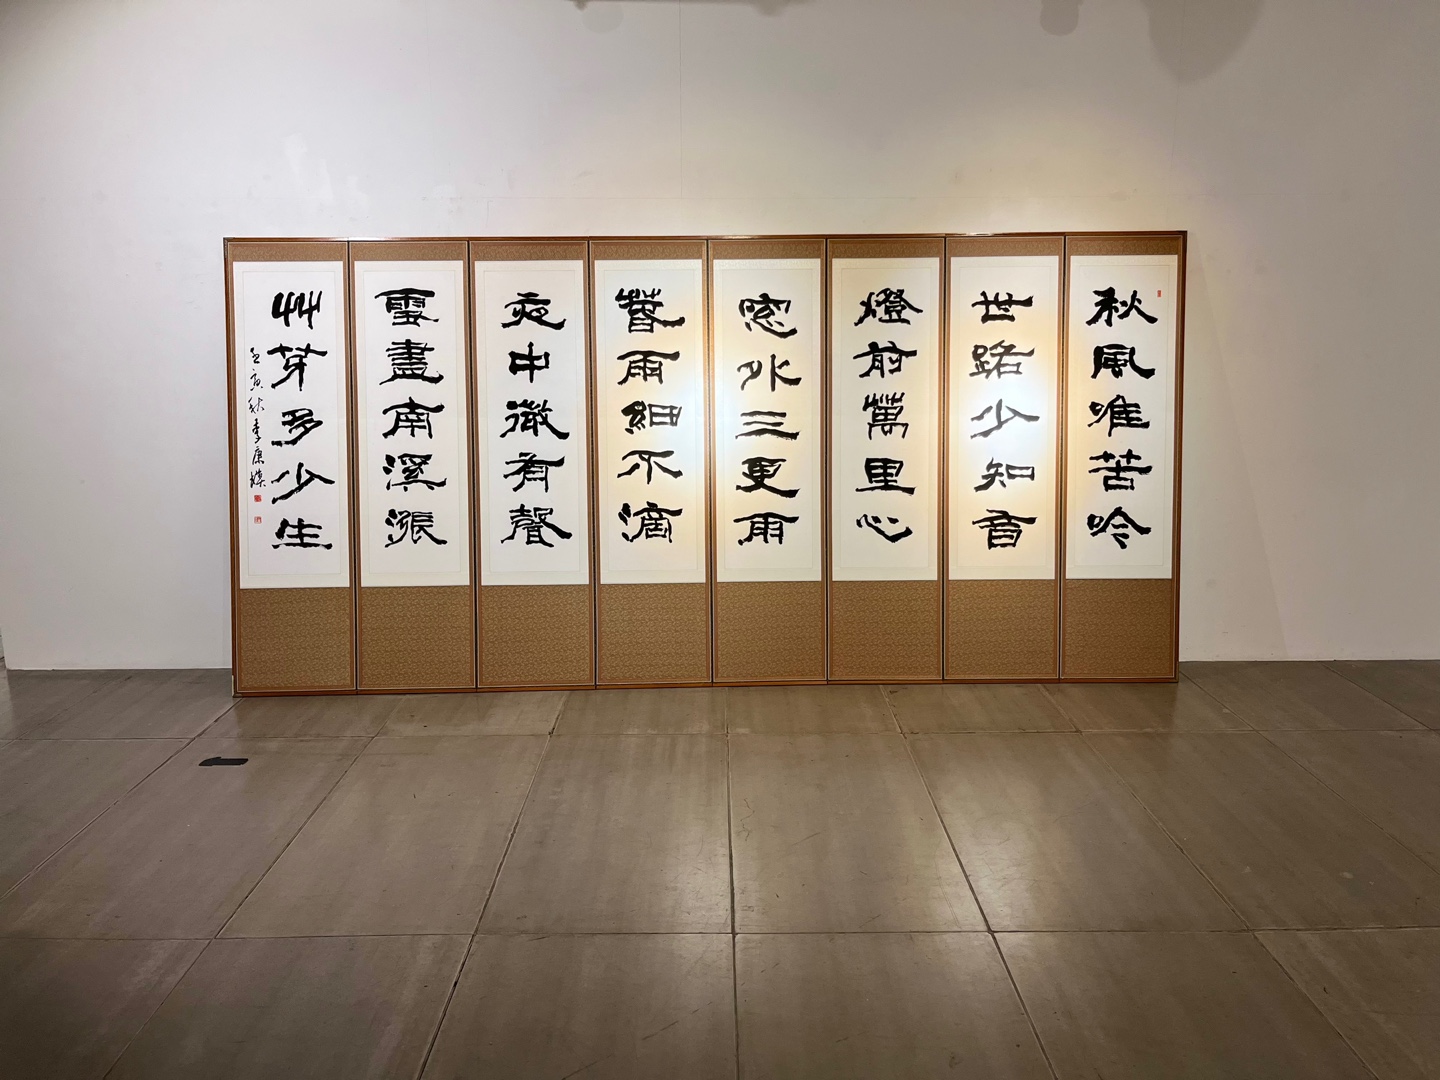 秋風唯苦吟
世路少知音
燈前萬里心
窓外三更雨
春雨細不滴
夜中微有聲
雪盡南溪漲
艸芽多少生
壬寅秋 李康